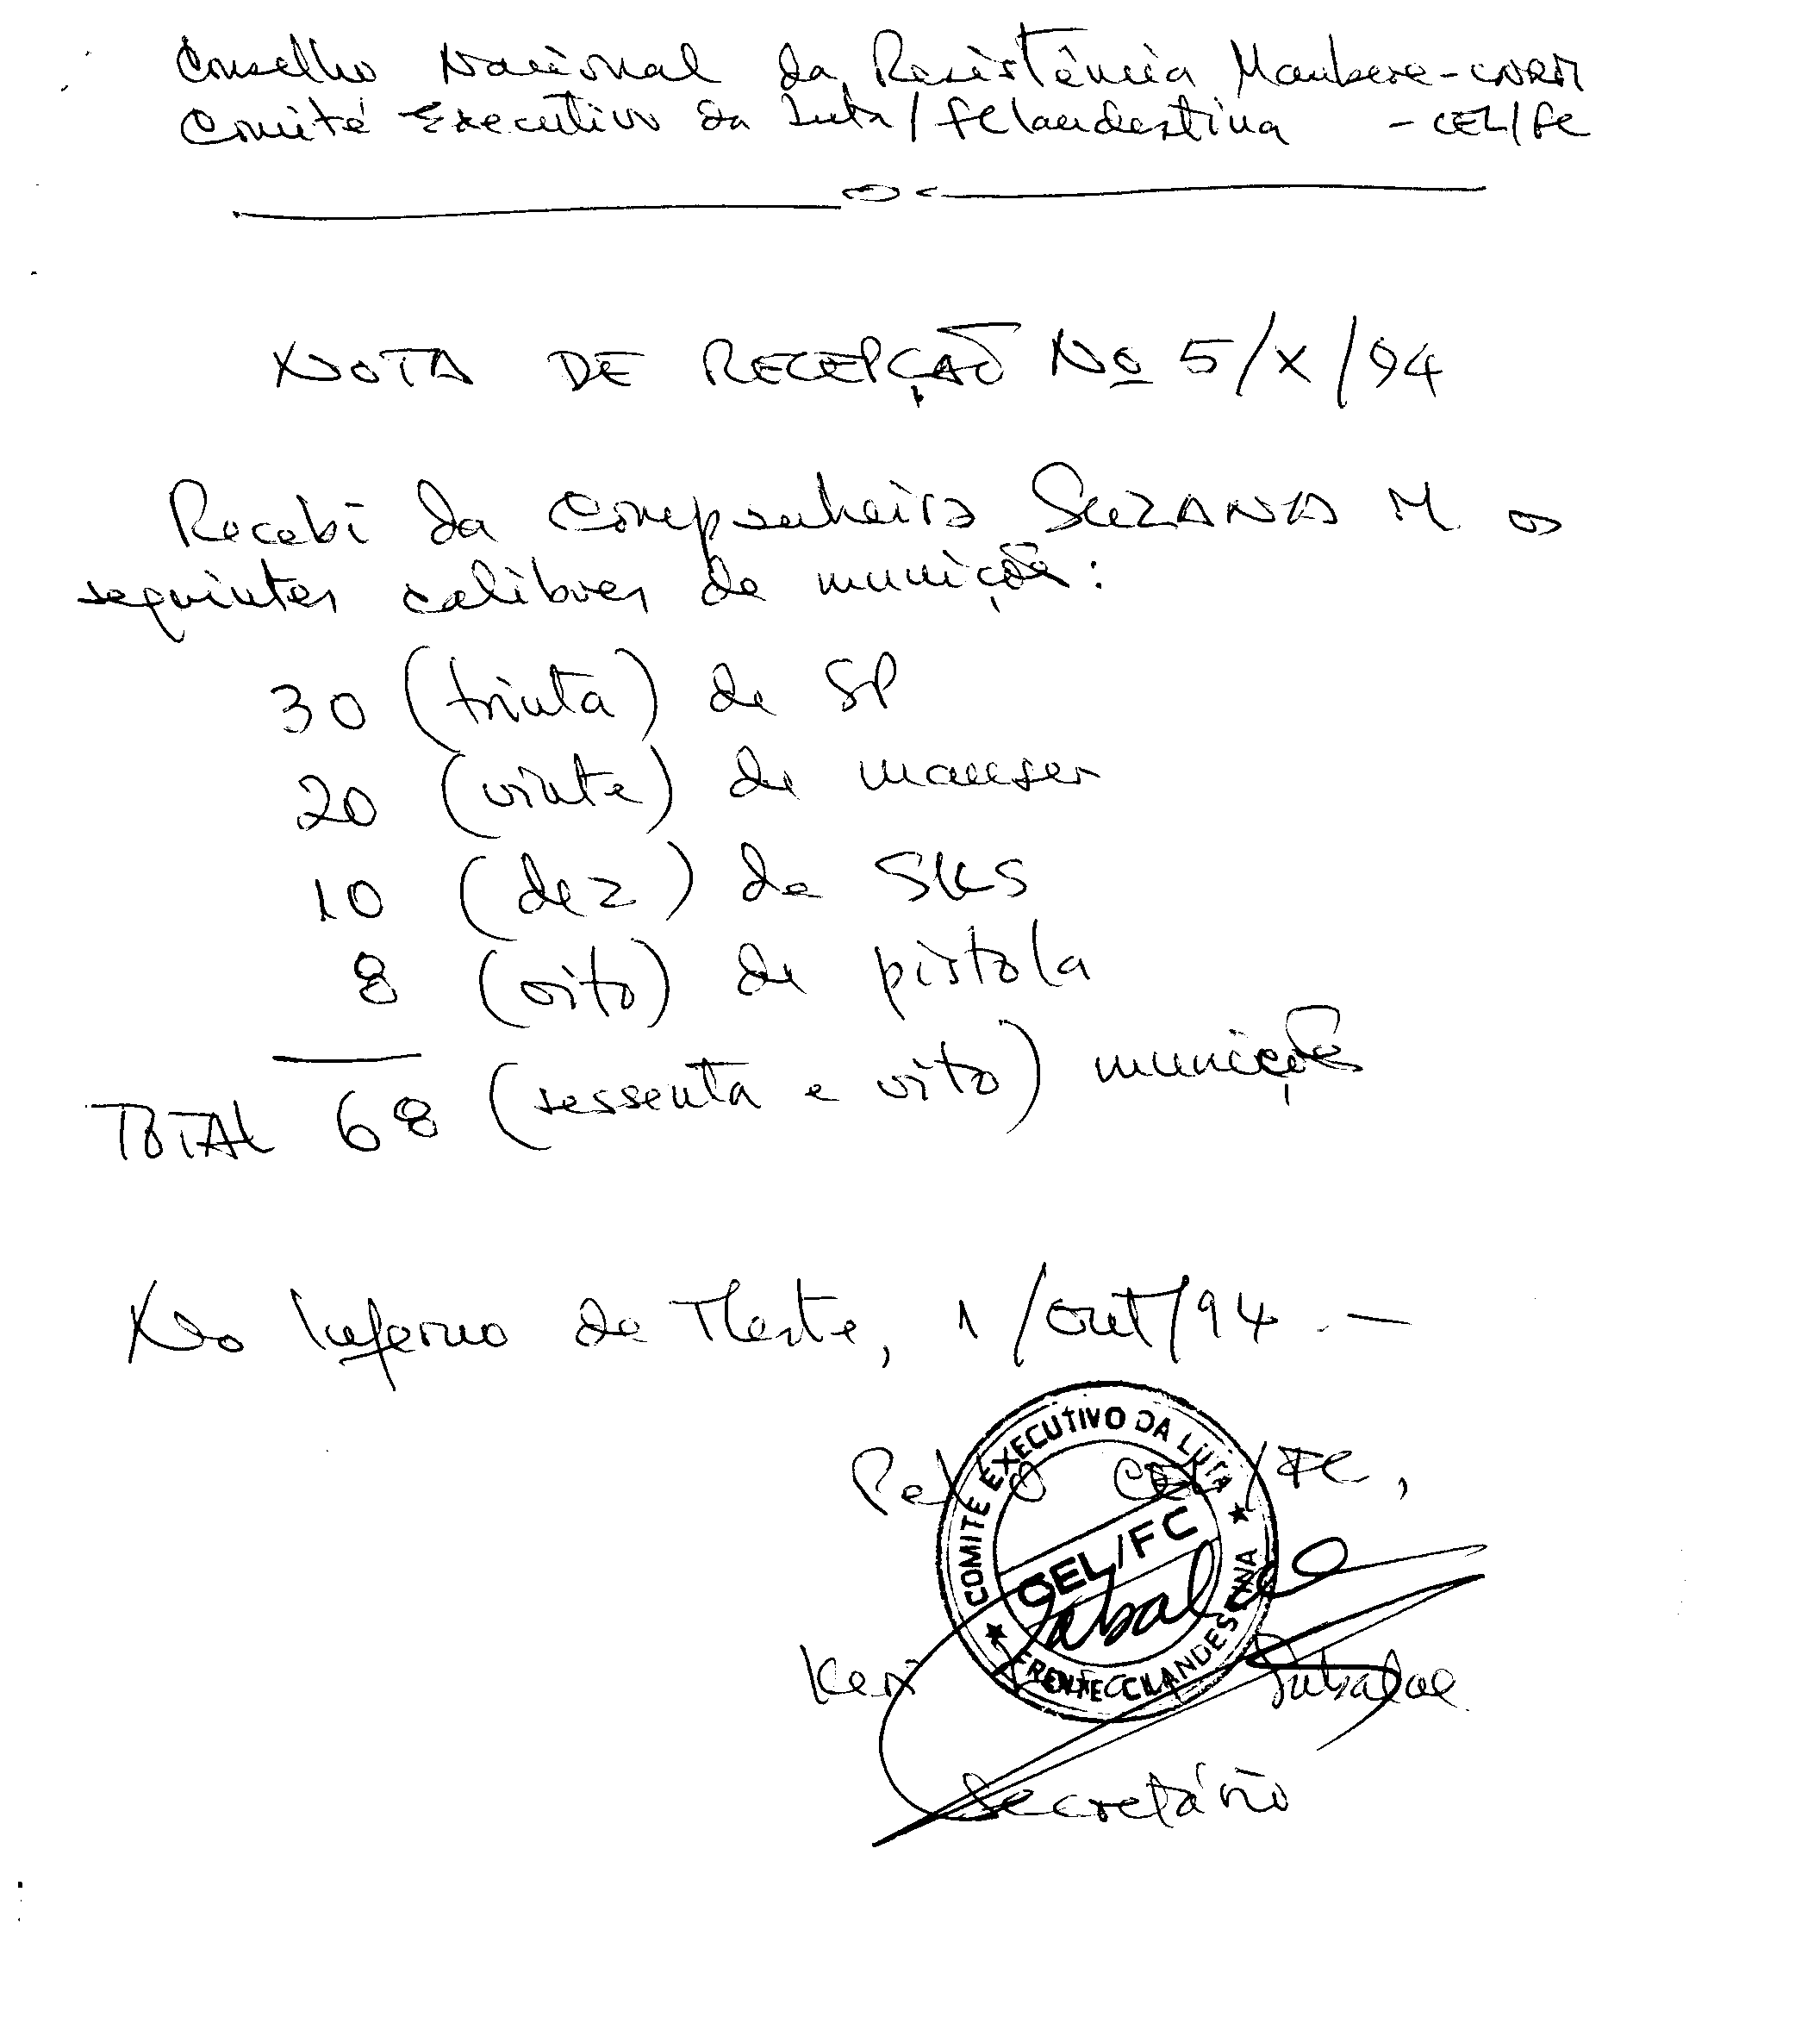 Conselho Nacional da Resistência Maubere - CNRM
Comité Executivo da Luta / FClandestina - CEL/FC
NOTA DE RECEPÇÃO Nº 5/X/94
Recebi da Companheira SUZANA M. os
seguintes calibres de munições:
30 (trinta) de SP
20 (vinte) de mauser
10 (dez) de SKS
8 (oito) de pistola
TOTAL 68 (sessenta e oito) munições
No Inferno da Morte, 1/Out/94.-
Pelo CEL/FC,
COMITÉ EXECUTIVO DA LUTA
CEL/FC
FRENTE CLANDESTINA
Sabalae
Keri Sabalae
Secretário